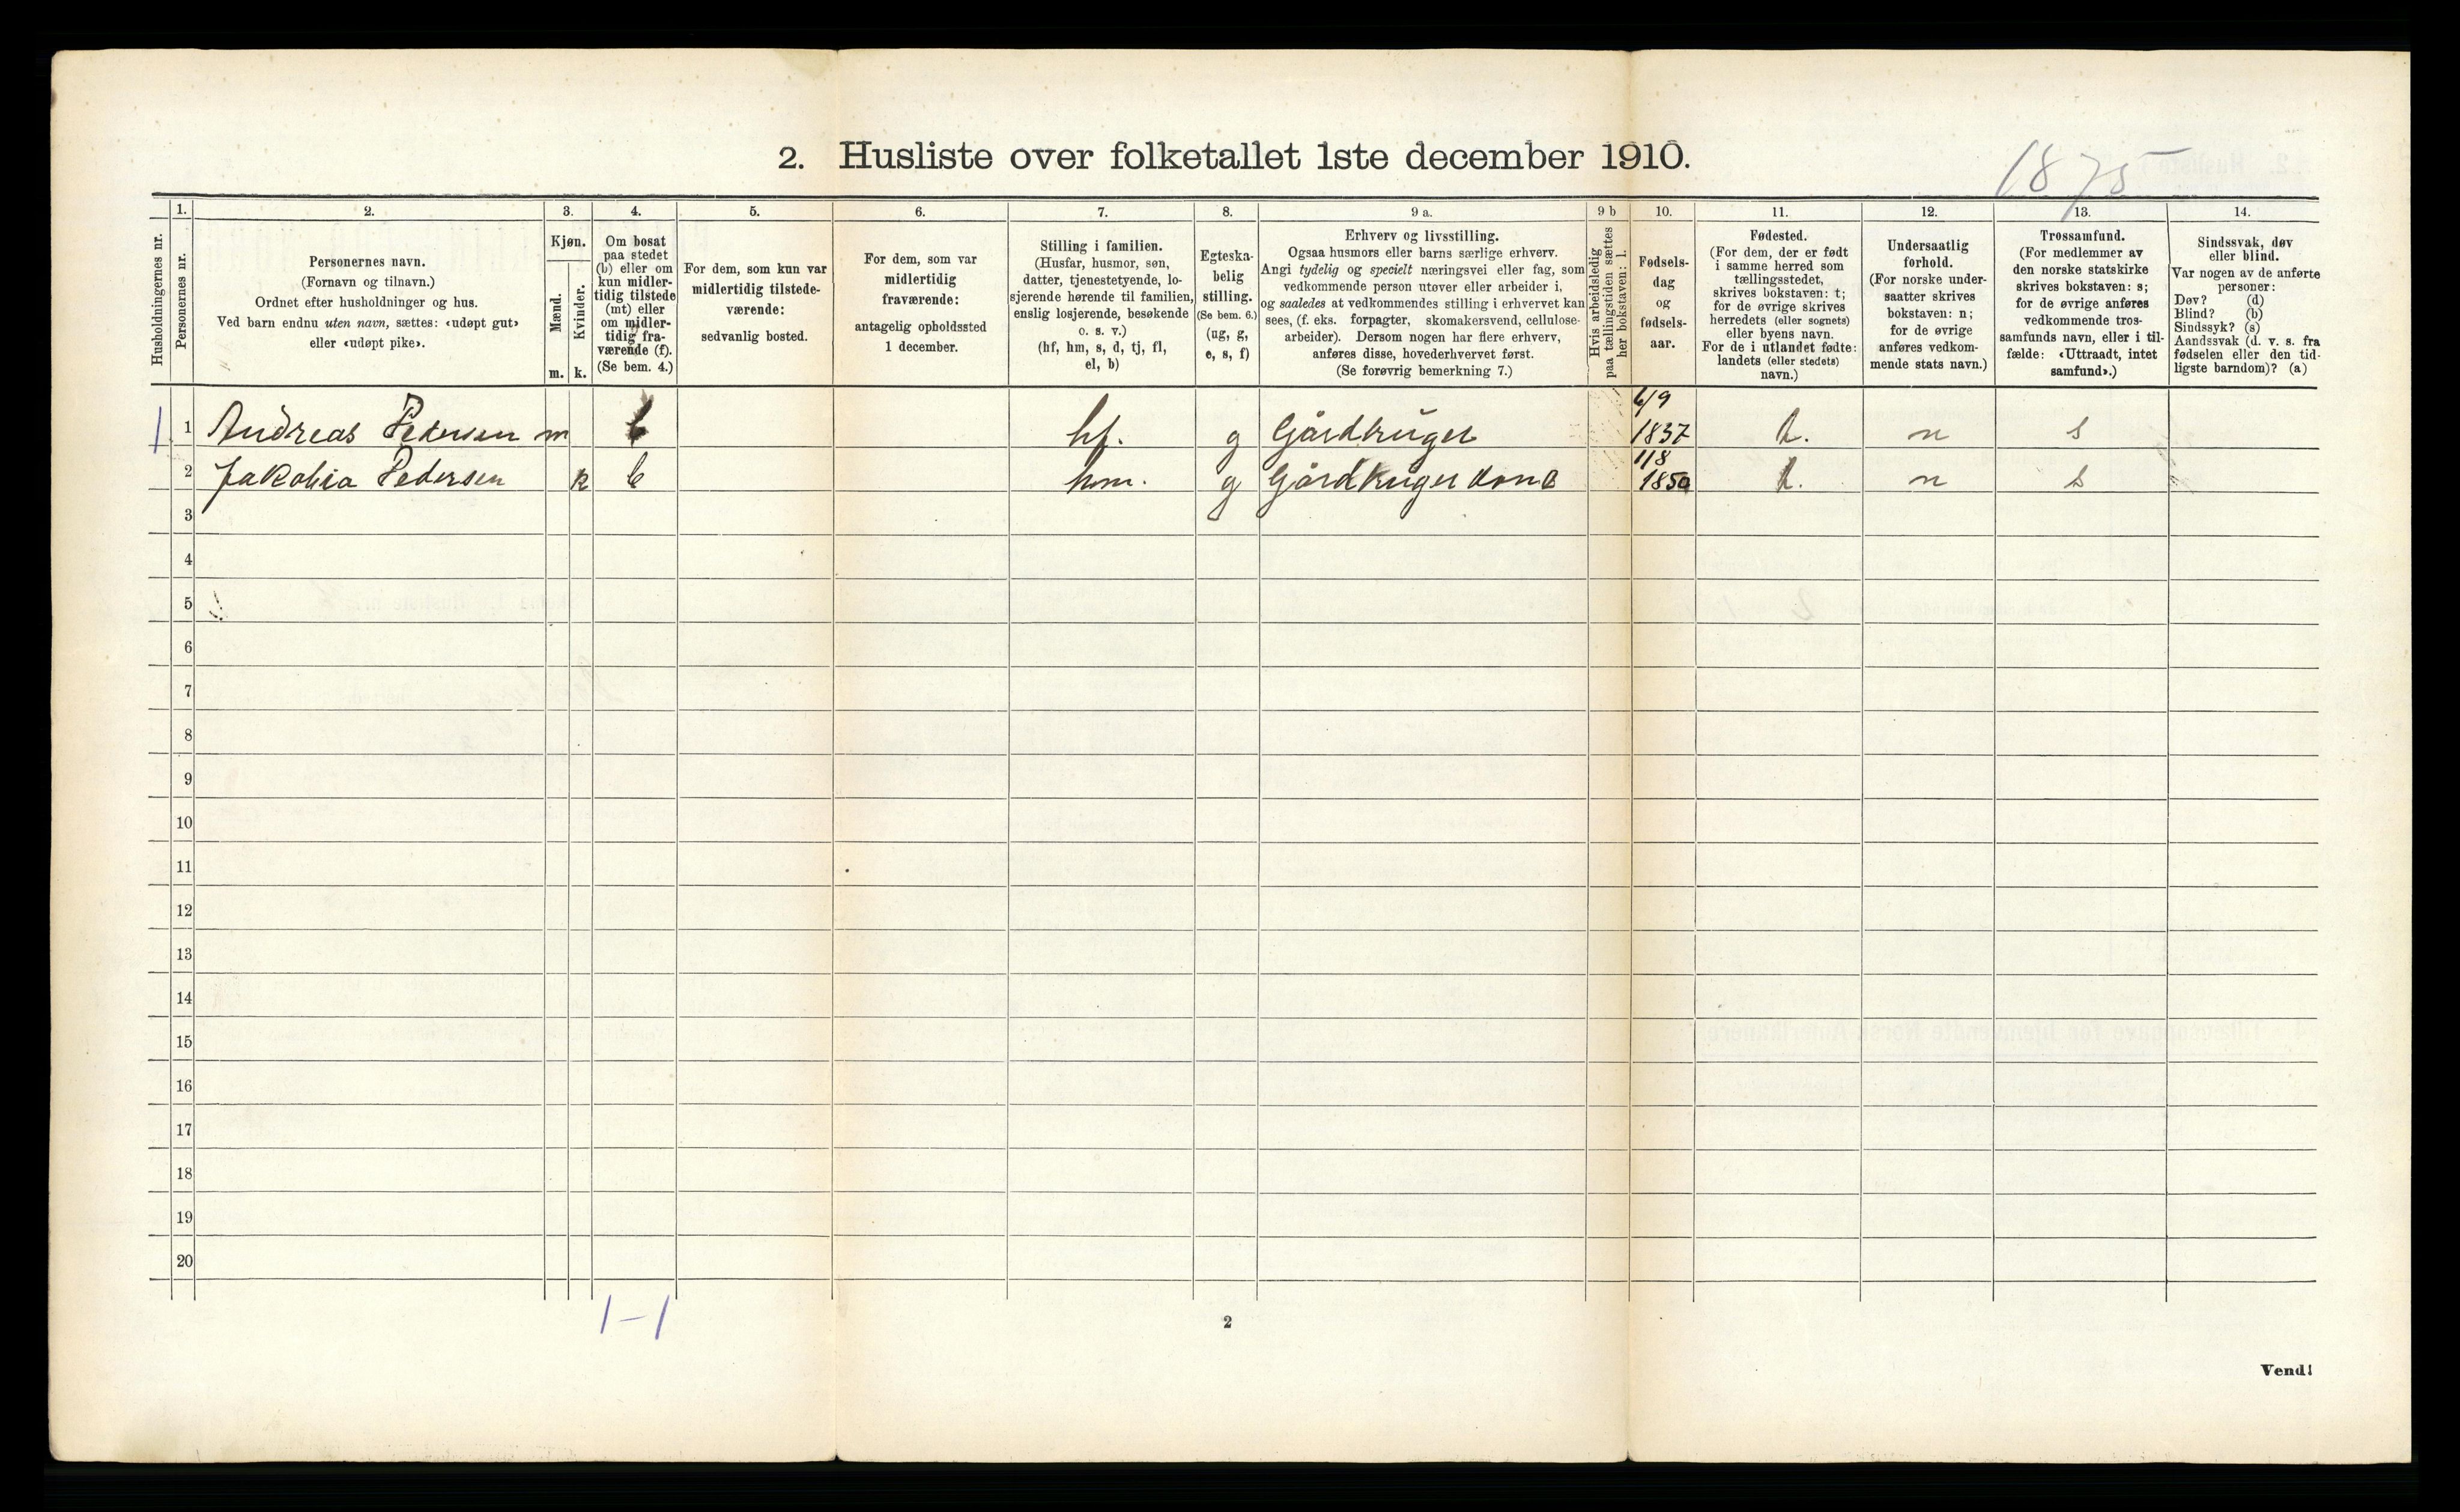 2. Husliste over folketallet 1ste december 1910.
1875
Husholdningernes nr.
1. Personernes nr.
2. Personernes navn.
(Fornavn og tilnavn.)
Ordnet efter husholdninger og hus.
Ved barn endnu uten navn, sættes: «udøpt gut»
eller «udøpt pike».
3. Kjøn.
Mænd. m.
Kvinder. k.
4. Om bosat
paa stedet
(b) eller om
kun midler-
tidig tilstede
(mt) eller
om midler-
tidig fra-
værende (f).
(Se bem. 4.)
5. For dem, som kun var
midlertidig tilstede-
værende:
sedvanlig bosted.
6. For dem, som var
midlertidig
fraværende:
antagelig opholdssted
1 december.
7. Stilling i familien.
(Husfar, husmor, søn,
datter, tjenestetyende, lo-
sjerende hørende til familien,
enslig losjerende, besøkende
o. s. v.)
(hf, hm, s, d, tj, fl,
el, b)
8. Egteska-
belig
stilling.
(Se bem. 6.)
(ug, g,
e, s, f)
9 a. Erhverv og livsstilling.
Ogsaa husmors eller barns særlige erhverv.
Angi tydelig og specielt næringsvei eller fag, som
vedkommende person utøver eller arbeider i,
og saaledes at vedkommendes stilling i erhvervet kan
sees, (f. eks. forpagter, skomakersvend, cellulose-
arbeider). Dersom nogen har flere erhverv,
anføres disse, hovederhvervet først.
(Se forøvrig bemerkning 7.)
9 b Hvis arbeidsledig
paa tællingstiden sættes
her bokstaven: l.
10. Fødsels-
dag
og
fødsels-
aar.
11. Fødested.
(For dem, der er født
i samme herred som
tællingsstedet,
skrives bokstaven: t;
for de øvrige skrives
herredets (eller sognets)
eller byens navn.
For de i utlandet fødte:
landets (eller stedets)
navn.)
12. Undersaatlig
forhold.
(For norske under-
saatter skrives
bokstaven: n;
for de øvrige
anføres vedkom-
mende stats navn.)
13. Trossamfund.
(For medlemmer av
den norske statskirke
skrives bokstaven: s;
for de øvrige anføres
vedkommende tros-
samfunds navn, eller i til-
fælde: «Uttraadt, intet
samfund».)
14. Sindssvak, døv
eller blind.
Var nogen av de anførte
personer:
Døv? (d)
Blind? (b)
Sindssyk? (s)
Aandssvak (d. v. s. fra
fødselen eller den tid-
ligste barndom)? (a)
1 1 Andreas Pedersen m b hf. g Gårdbruger 6/9 1837 t. n s
2 Jakobia Pedersen k b hm. g Gårdbruger kone 1/8 1850 t. n s
3
4
5
6
7
8
9
10
11
12
13
14
15
16
17
18
19
20
1-1
2
Vend!